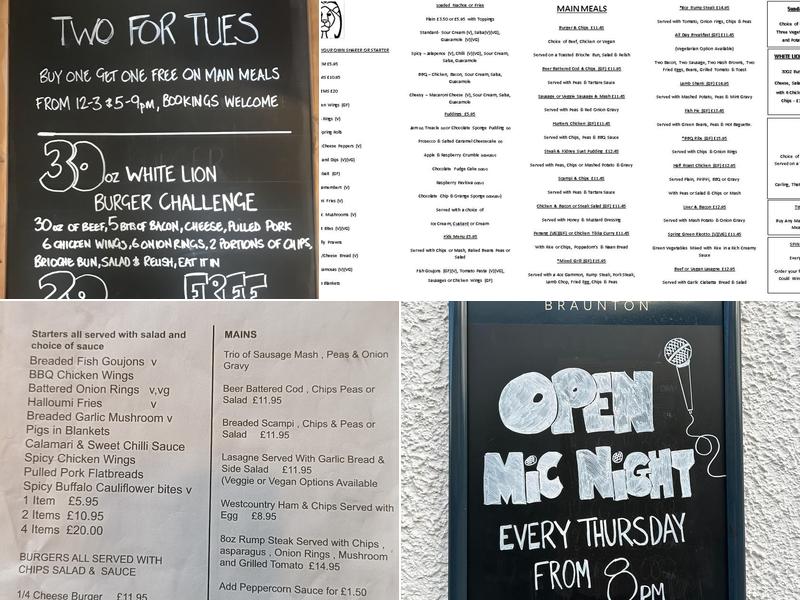 TWO FOR TUES
BUY ONE GET ONE FREE ON MAIN MEALS
FROM 12-3 & 5-9pm, BOOKINGS WELCOME
30oz WHITE LION
BURGER CHALLENGE
30oz OF BEEF, 5 BITS OF BACON, CHEESE, PULLED PORK
6 CHICKEN WINGS, 6 ONION RINGS, 2 PORTIONS OF CHIPS,
BRIOCHE BUN, SALAD & RELISH, EAT IT IN
20 FREE
Loaded Nachos or Fries
Plain £3.50 or £5.95 with Toppings
Standard- Sour Cream (V), Salsa(V)(VG),
Guacamole (V)(VG)
Spicy – Jalapenos (V), Chilli (V)(VG), Sour Cream,
Salsa, Guacamole
BBQ – Chicken, Bacon, Sour Cream, Salsa,
Guacamole
Cheesy – Macaroni Cheese (V), Sour Cream, Salsa,
Guacamole
Puddings £5.95
Prosecco & Salted Caramel Cheesecake
Apple & Raspberry Crumble
Chocolate Fudge Cake
Raspberry Pavlova
Chocolate Chip & Orange Sponge
Served with a choice of
Ice Cream, Custard or Cream
Kids Menu £5.95
Served with Chips or Mash, Baked Beans Peas or
Salad
Fish Goujons (GF)(V), Tomato Pasta (V)(VG),
Sausages or Chicken Wings (GF)
MAIN MEALS
Burger & Chips £11.45
Choice of Beef, Chicken or Vegan
Served on a Toasted Brioche Bun, Salad & Relish
Beer Battered Cod & Chips (GF) £11.95
Served with Peas & Tartare Sauce
Sausages or Veggie Sausage & Mash £11.45
Served with Peas & Red Onion Gravy
Hunters Chicken £11.45
Served with Chips, Peas & BBQ Sauce
Steak & Kidney Suet Pudding £12.45
Served with Peas, Chips or Mashed Potato & Gravy
Scampi & Chips £11.45
Served with Peas & Tartare Sauce
Chicken & Bacon or Steak Salad (GF) £11.45
Served with Honey & Mustard Dressing
With Rice or Chips, Poppadom's & Naan Bread
*Mixed Grill (GF) £15.95
Served with a 4oz Gammon, Rump Steak, Pork Steak,
Lamb Chop, Fried Egg, Chips & Peas
*8oz Rump Steak £14.95
Served with Tomato, Onion Rings, Chips & Peas
All Day Breakfast (GF) £11.45
(Vegetarian Option Available)
Two Bacon, Two Sausage, Two Hash Browns, Two
Fried Eggs, Beans, Grilled Tomato & Toast
Lamb Shank (GF) £16.95
Served with Mashed Potato, Peas & Mint Gravy
Fish Pie (GF) £13.45
Served with Green Beans, Peas & Hot Baguette
*BBQ Ribs (GF) £15.95
Served with Chips & Onion Rings
Half Roast Chicken (GF) £12.95
Served Plain, PiriPiri, BBQ or Gravy
With Peas or Salad & Chips or Mash
Liver & Bacon £12.95
Served with Mash Potato & Onion Gravy
Green Vegetables Mixed with Rice in a Rich Creamy
Sauce
Beef or Vegan Lasagne £12.95
Served with Garlic Ciabatta Bread & Salad
Starters all served with salad and
choice of sauce
Breaded Fish Goujons v
BBQ Chicken Wings
Battered Onion Rings v,vg
Halloumi Fries v
Breaded Garlic Mushroom v
Pigs in Blankets
Calamari & Sweet Chilli Sauce
Spicy Chicken Wings
Pulled Pork Flatbreads
Spicy Buffalo Cauliflower bites v
1 Item £5.95
2 Items £10.95
4 Items £20.00
BURGERS ALL SERVED WITH
CHIPS SALAD & SAUCE
1/4 Cheese Burger £11.95
MAINS
Trio of Sausage Mash , Peas & Onion
Gravy
Beer Battered Cod , Chips Peas or
Salad £11.95
Breaded Scampi , Chips & Peas or
Salad £11.95
Lasagne Served With Garlic Bread &
Side Salad £11.95
(Veggie or Vegan Options Available
Westcountry Ham & Chips Served with
Egg £8.95
8oz Rump Steak Served with Chips ,
asparagus , Onion Rings , Mushroom
and Grilled Tomato £14.95
Add Peppercorn Sauce for £1.50
BRAUNTON
OPEN
MiC NiGHT
EVERY THURSDAY
FROM 8PM